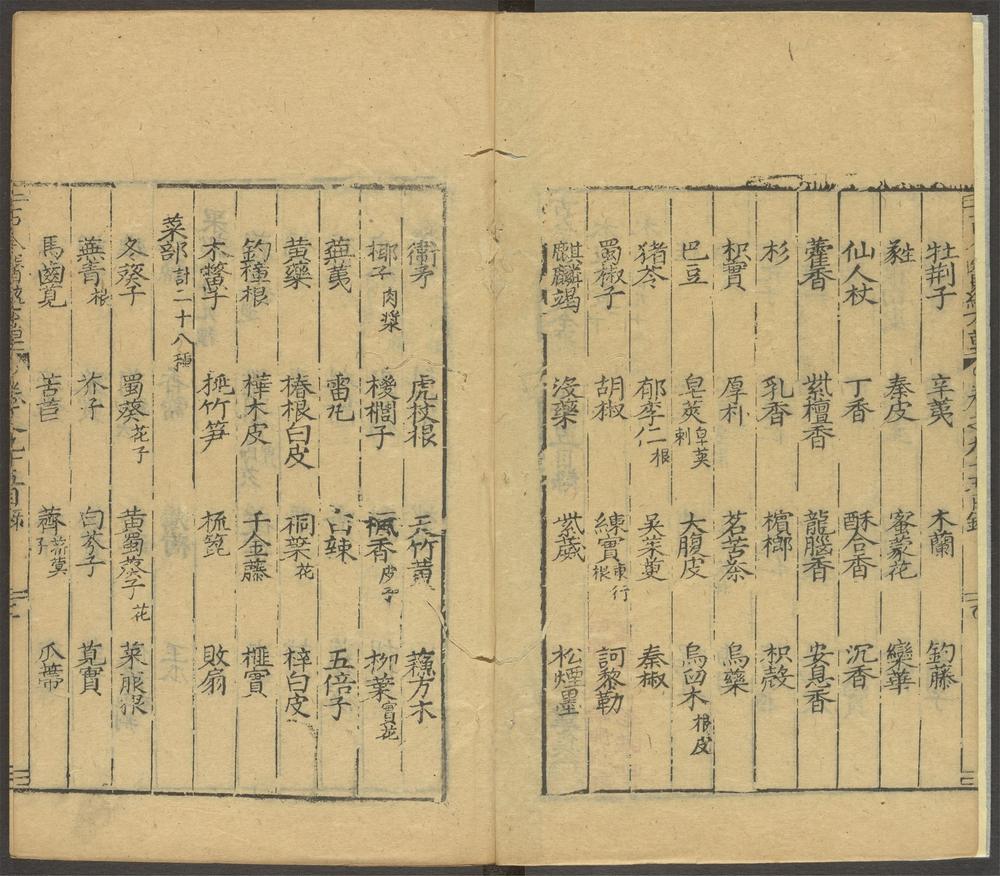 牡荆子 辛夷 木蘭 釣藤
秦皮 蜜蒙花 欒華
仙人杖 丁香 酥合香 沉香
藿香 紫檀香 龍腦香 安息香
杉 乳香 檳榔 枳殼
枳實 厚朴 茗苦荼 烏藥
巴豆 皂莢皁莢刺 大腹皮 烏臼木根皮
猪苓 郁李仁根 吳茱萸 秦椒
蜀椒子 胡椒 練實東行根 訶黎勒
麒麟竭 沒藥 紫葳 松煙墨
衞矛 虎杖根 天竹黄 蘓方木
椰子肉漿 楓香皮 柳葉實花
蕪荑 雷丸 五倍子
黄藥 椿根白皮 桐葉花 梓白皮
釣樟根 樺木皮 千金藤 榧實
木鱉子 梳箆 敗扇
菜部計二十八種
冬葵子 蜀葵花子 黄蜀葵子花 萊服根
蕪青根 芥子 白芥子 莧實
馬齒莧 苦苣 薺子菥蓂 瓜蔕